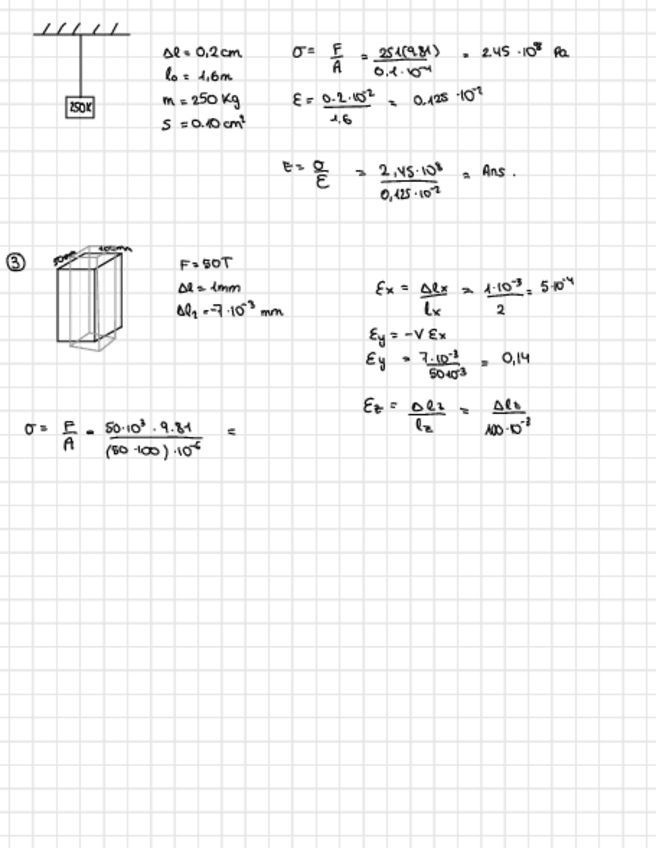 250K
Δl = 0,2 cm
l₀ = 1,6m
m = 250 Kg
S = 0.10 cm²
σ = F/A = 251(9.81)/0.1·10⁻⁴ = 2.45 · 10⁸ Pa
ε = 0.2·10⁻²/1.6 = 0.125 · 10⁻²
E = σ/ε = 2,45·10⁸/0,125·10⁻² = Ans.
③
50mm 100mm
F = 50T
Δl = 1mm
Δl₂ = -7·10⁻³ mm
εx = Δlx/lx = 1·10⁻³/2 = 5·10⁻⁴
εy = -ν εx
εy = 7·10⁻³/50·10⁻³ = 0,14
εz = Δlz/lz = Δl₀/100·10⁻³
σ = F/A = 50·10³ · 9.81/(50·100)·10⁻⁶ =